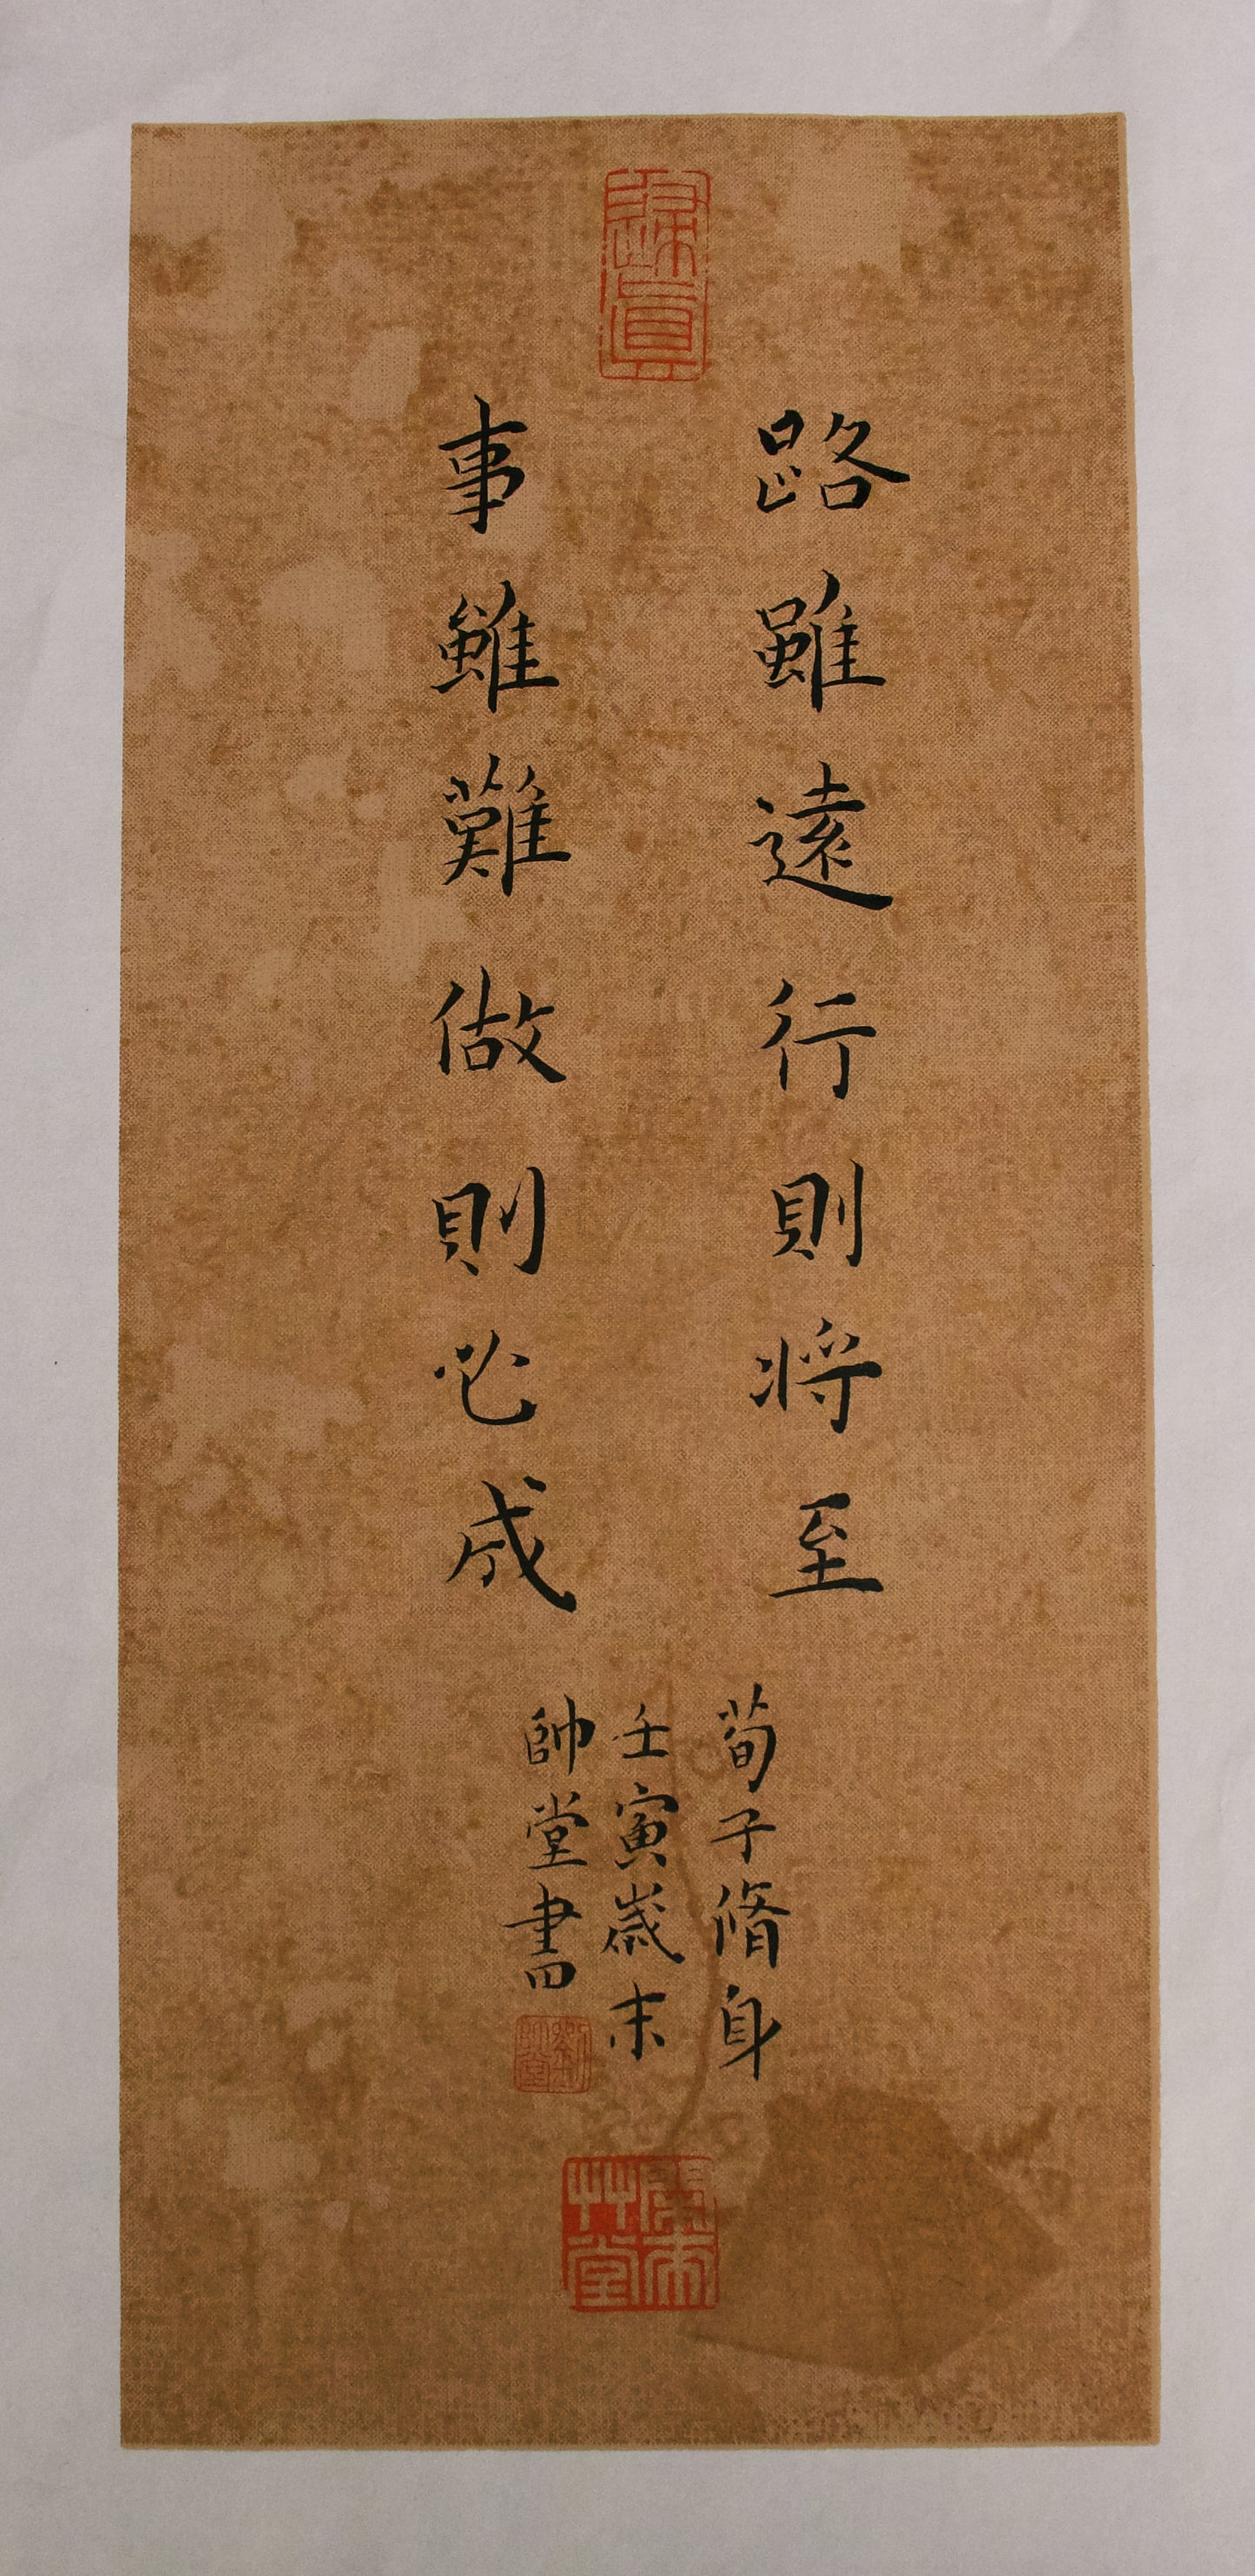 路雖遠行則將至
事雖難做則必成
荀子脩身
壬寅歲末
帥堂書